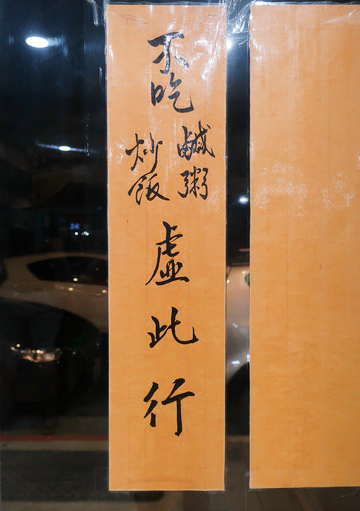 不吃
鹹粥
炒飯
虛此行